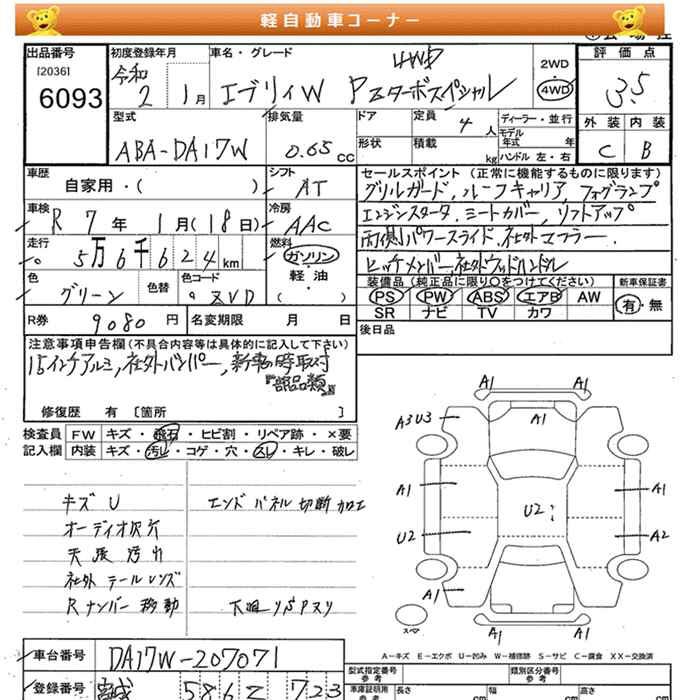 軽自動車コーナー
出品番号 初度登録年月 車名・グレード 4WD 2WD 評価点
[2036] 令和 2 1月 エブリィW Pスターボスペシャル 4WD 3.5
6093
型式 排気量 ドア 定員 4人 ディーラー・並行 外装 内装
ABA-DA17W 0.65cc 形状 積載 kg モデル年式 年 C B
ハンドル 左・右
車歴 シフト セールスポイント(正常に機能するものに限ります)
自家用・( ) AT グリルガード、ルーフキャリア、フォグランプ
車検 冷房 エンジンスタータ、シートカバー、リフトアップ
R 7年 1月(18日) AAC 両側パワースライド、社外マフラー、
走行 燃料 ヒッチメンバー、社外ウッドハンドル
5万6千624km ガソリン・軽・油・( )
色 色替 色コード 装備品(純正品に限り〇をつけてください) 新車保証書
グリーン ZVD PS PW ABS エアB AW 有・無
SR ナビ TV カワ
R券 9080円 名変期限 月 日 後日品
注意事項申告欄(不具合内容等は具体的に記入して下さい)
15インチアルミ、社外バンパー、新車時取付
『部品類』
修復歴 有 [箇所 ]
検査員 FW キズ・飛石・ヒビ割・リペア跡・×要
記入欄 内装 キズ・汚レ・コゲ・穴・スレ・キレ・破レ
キズU エンドパネル切断加工
オーディオ欠品
天張汚れ
社外テールレンズ
Rナンバー移動 下廻りサビスリ
A1 A1
A3U3 A1
A1 A1
U2 U2 A2
A1
A1 A1
スペア
A－キズ E－エクボ U－凹み W－補修跡 S－サビ C－腐食 XX－交換済
車台番号 DA17W-207071 型式指定番号 類別区分番号
登録番号 宮城 586 そ 723 車庫証明用参考 長さ cm 幅 cm 高さ cm